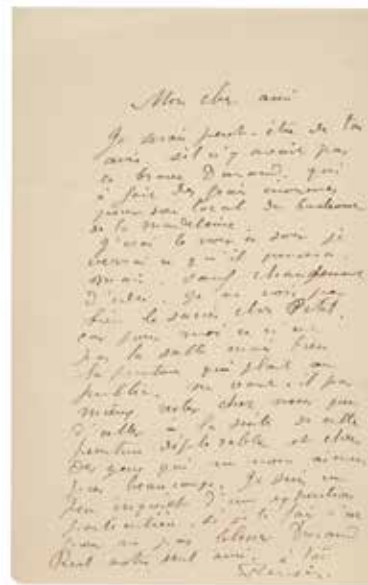 Mon cher ami
Je serais peut-être de ton
avis s'il n'y avait pas
ce brave Durand, qui
a fait des frais énormes
pour son local du boulevard
de la Madeleine.
J'irai le voir ce soir je
verrai ce qu'il pensera
mais, sauf changement
d'idée. Je ne vois pas
bien le succès chez Petit,
car pour moi ce n'est
pas la salle mais bien
la peinture qui plaît au
public. ne vaut-il pas
mieux rester chez nous que
d'aller à la suite de cette
peinture déplorable et chez
des gens qui ne nous aiment
pas beaucoup. Je suis un
peu inquiet d'une exposition
pas
pour ne pas Durand
Petit notre seul ami. à toi
Renoir